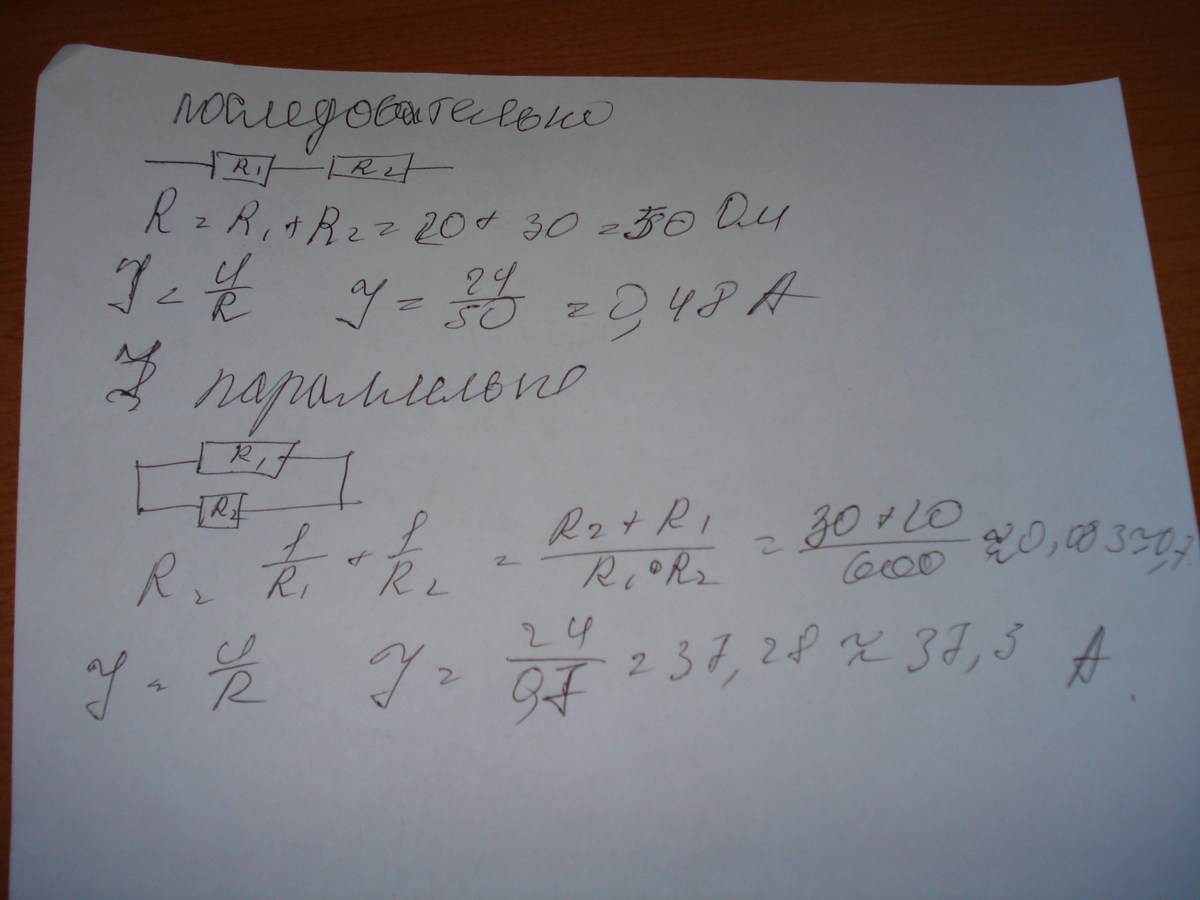 последовательно
R1 R2
R = R1 + R2 = 20 + 30 = 50 Ом
J = U/R J = 24/50 = 0,48 А
параллельно
R1
R2
R = 1/R1 + 1/R2 = R2 + R1 / R1 • R2 = 30 + 20 / 600 ≈ 0,083 ≈
J = U/R J = 24/0,7 = 37,28 ≈ 37,3 А